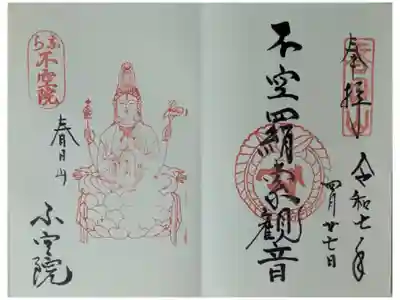 奉拝
令和七年
四月廿七日
不空羂索観音
春日山
不空院
なら
不空院